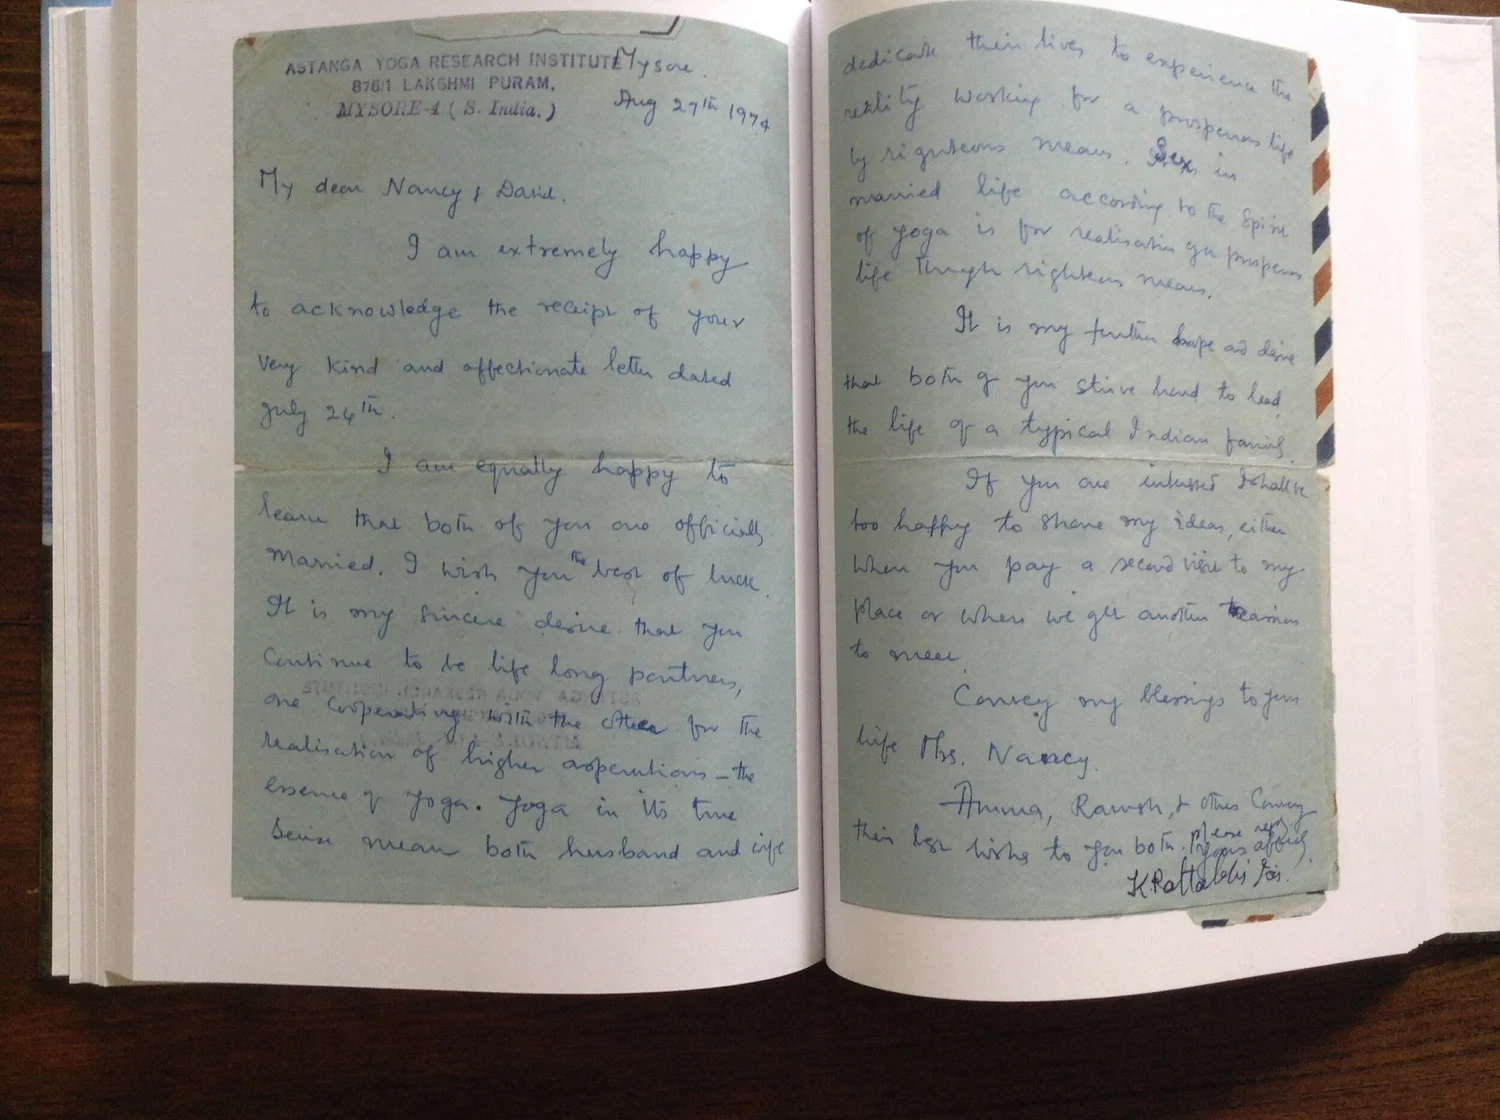 ASTANGA YOGA RESEARCH INSTITUTE
876/1 LAKSHMI PURAM,
MYSORE-4 (S. India.)
Mysore.
Aug 27th 1974
My dear Nancy & David.
I am extremely happy
to acknowledge the receipt of your
very kind and affectionate letter dated
July 24th.
I am equally happy to
learn that both of you are officially
married. I wish you the best of luck.
It is my sincere desire that you
continue to be life long partners,
one cooperating with the other for the
realisation of higher asperations – the
essence of yoga. Yoga in its true
sense mean both husband and wife
dedicate their lives to experience the
reality working for a prosperous life
by righteous means. Sex in
married life according to the spirit
of yoga is for realisation of a prosperous
life through righteous means.
It is my further hope and desire
that both of you strive hard to lead
the life of a typical Indian family.
If you are interested I shall be
too happy to share my ideas, either
when you pay a second visit to my
place or when we get another
to meet.
Convey my blessings to your
wife Mrs. Nancy.
Amma, Ramesh, & others convey
their best wishes to you both. please reply
yours affly
K Pattabhi Jois.